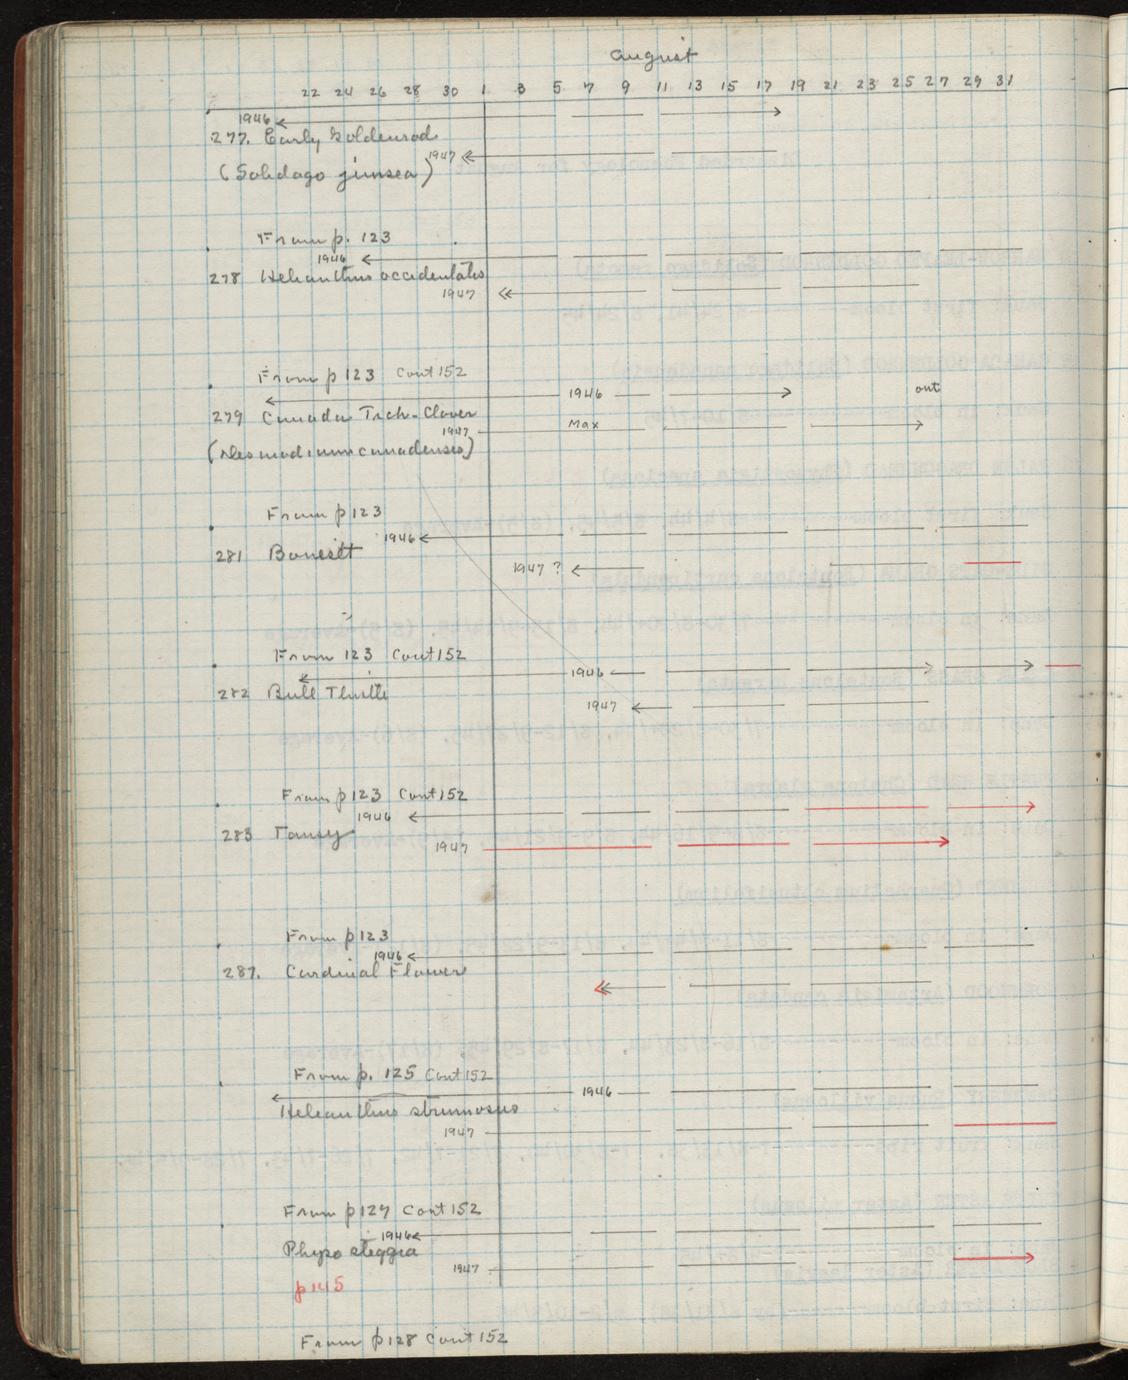 August
22 24 26 28 30 1 3 5 7 9 11 13 15 17 19 21 23 25 27 29 31
1946
277. Early Goldenrod
1947
(Solidago juncea)
From p. 123
1946
278 Helianthus occidentalis
1947
From p 123 Cont 152
1946 out
279 Canada Tick-Clover
1947 Max
(Desmodium canadense)
From p 123
1946
281 Boneset
1947 ?
From 123 Cont 152
1946
282 Bull Thistle
1947
From p 123 Cont 152
1946
283 Tansy
1947
From p 123
1946
287. Cardinal Flower
From p. 125 Cont 152
1946
Helianthus strumosus
1947
From p 127 Cont 152
1946
Physostegia
1947
p 145
From p 128 Cont 152